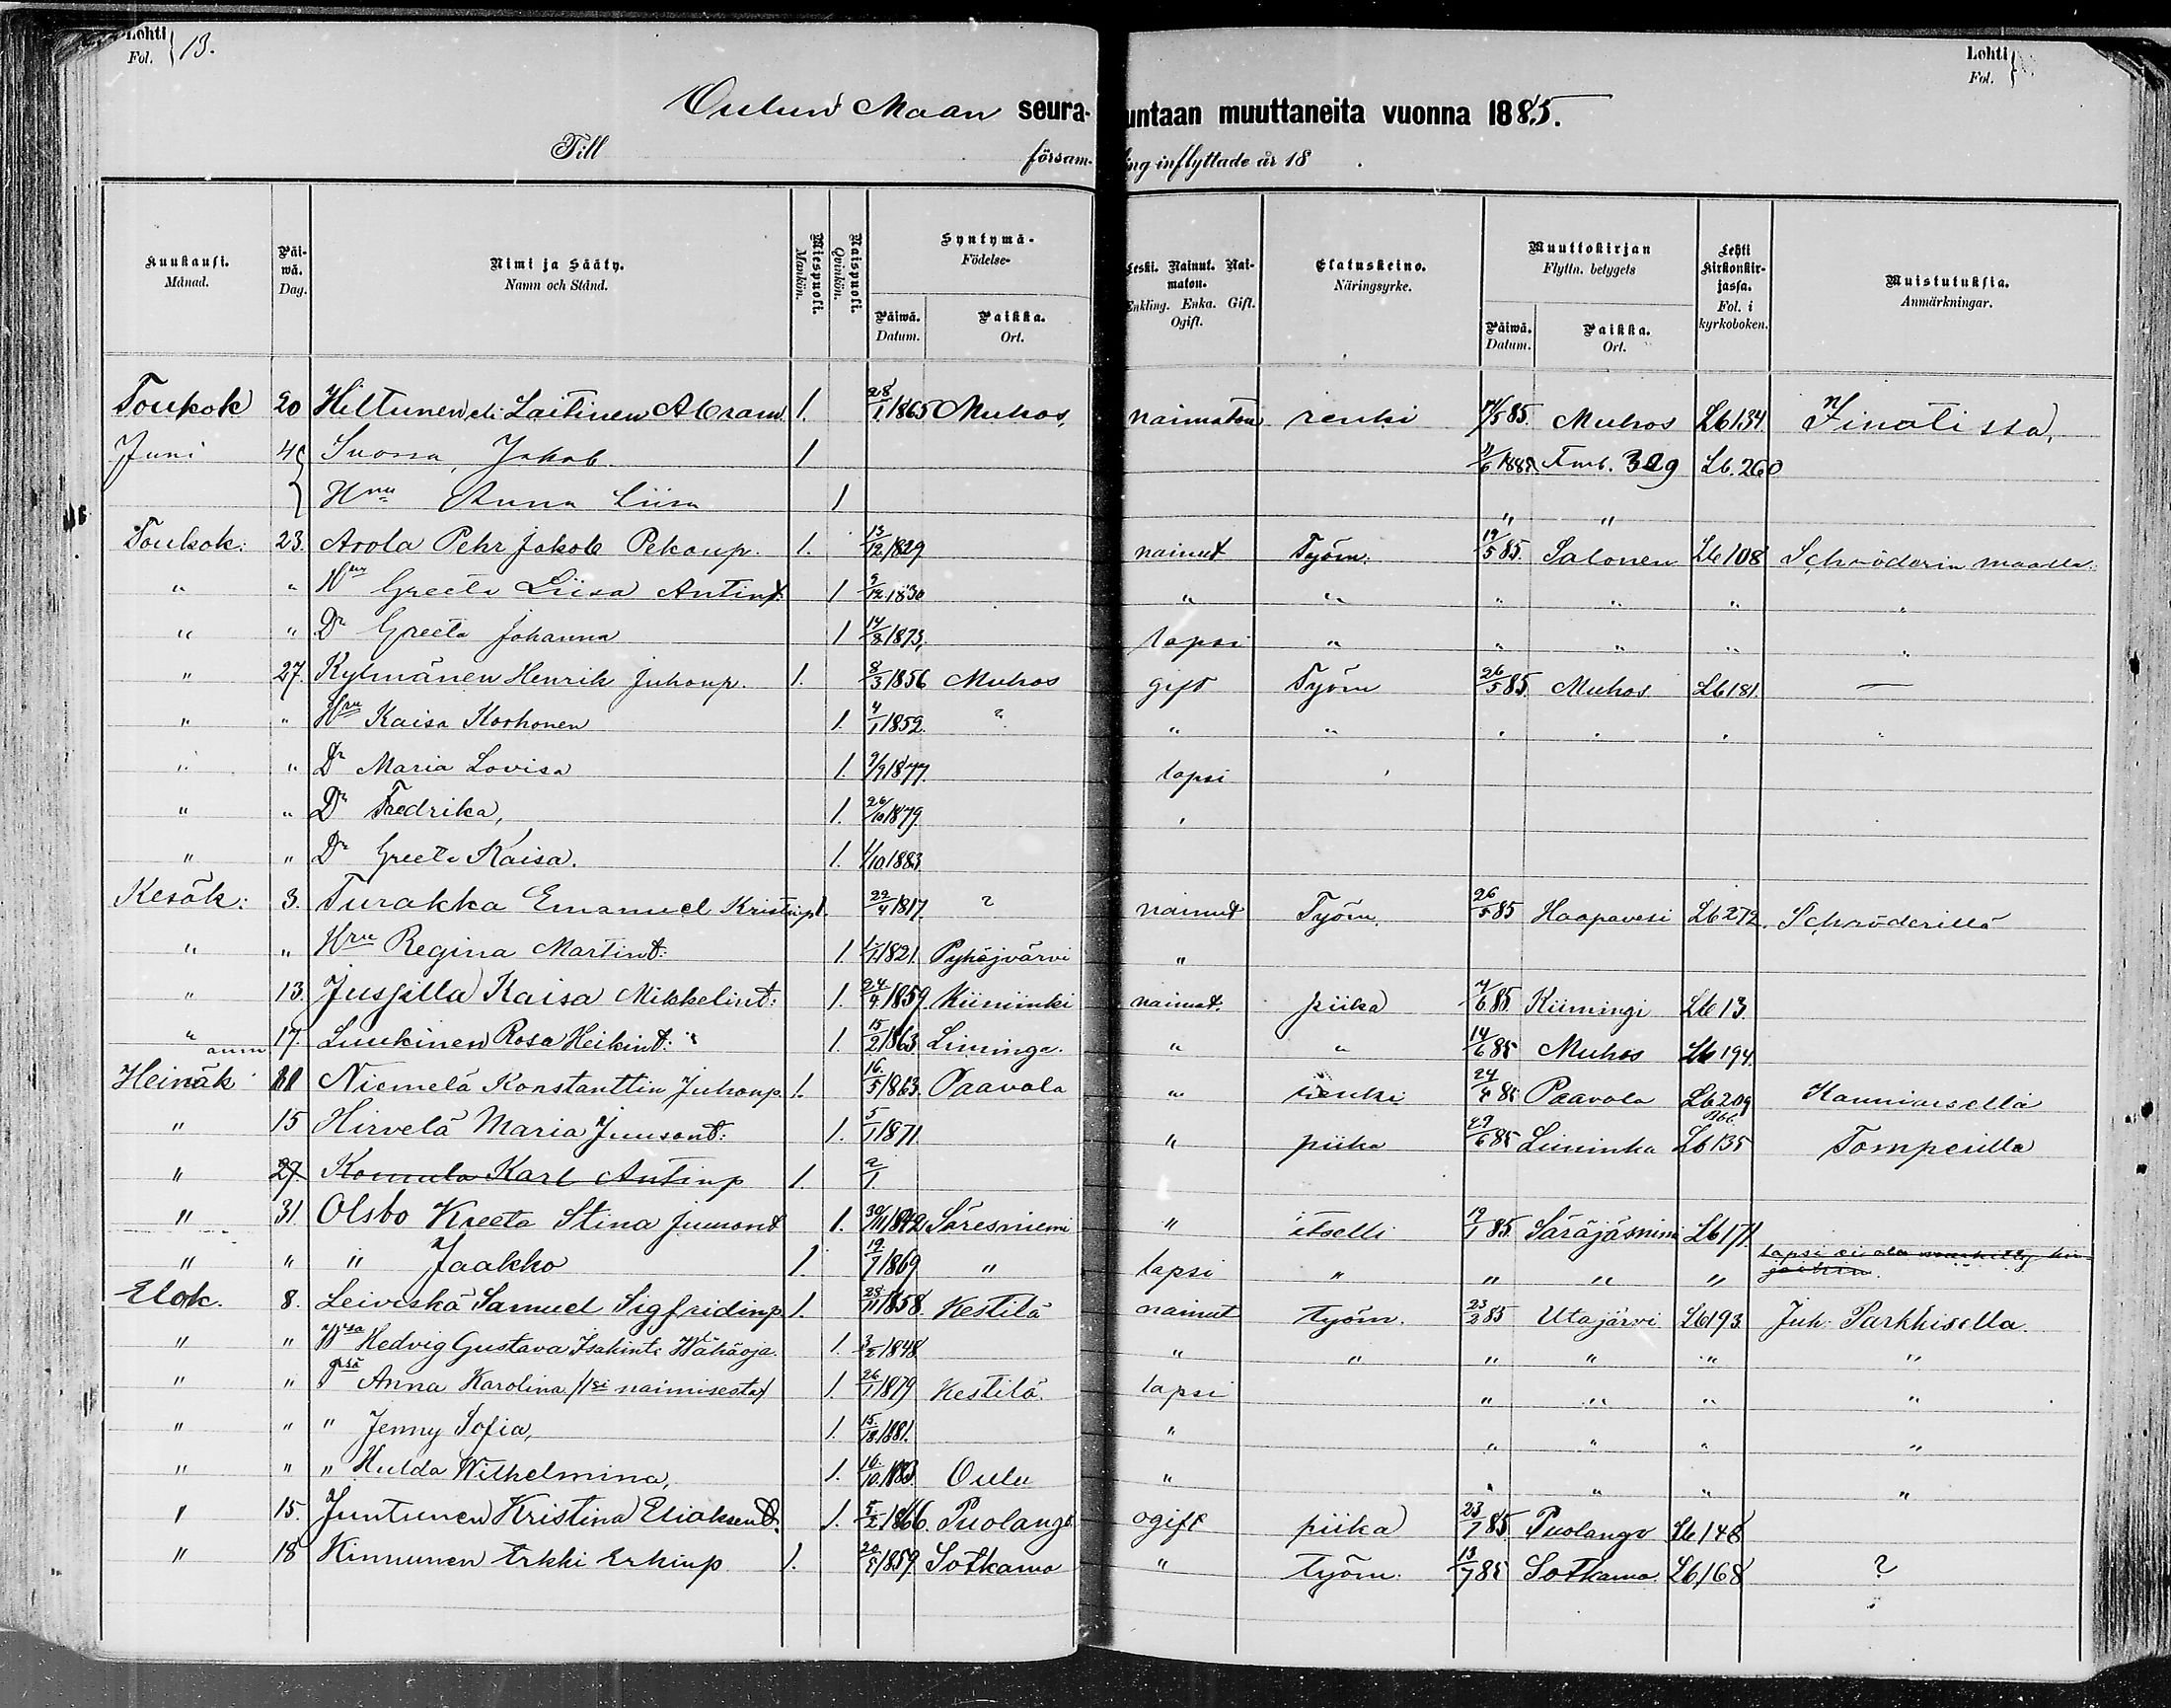 Lohti Fol. } 13. Lohti Fol. }
Oulun Maan seura- untaan muuttaneita vuonna 1885.
Till församling inflyttade år 18 .
Kuukausi. Månad. Päiwä. Dag. Nimi ja Sääty. Namn och Stånd. Miespuoli. Mankön. Naispuoli. Qvinkön. Syntymä- Födelse- Päiwä. Datum. Paikka. Ort. Leski. Nainut. Naimaton. Enkling. Enka. Gift. Ogift. Elatuskeino. Näringsyrke. Muuttokirjan Flyttn. betygets Päiwä. Datum. Paikka. Ort. Lehti kirkonkirjassa. Fol. i kyrkoboken. Muistutuksia. Anmärkningar.
Toukok 20 Hiltunen eli Laitinen Abram 1. 28/1 1865 Muhos, naimaton renki 17/5 85. Muhos Lb 134
Juni 4 Suossa, Jakob. 1 Lb. 260
Hru Anna Liisa 1 " "
Toukok: 23. Arola Pehr Jakob Pekanp. 1. 13/12 1829 nainut Työm. 19/5 85. Salonen Lb 108 Schröderin maalla.
" " Hru Greeta Liisa Antint. 1 9/12 1830 " " " " " "
" " Dr Greeta Johanna 1 14/8 1873, lapsi " " " " "
" 27. Kylmänen Henrik Juhonp. 1. 8/3 1856 Muhos gift Työm 26/5 85. Muhos Lb 181. —
" " Hru Kaisa Korhonen 1. 4/1 1859. ? " " " " " "
" " Dr Maria Lovisa 1. 9/9 1877. lapsi
" " Dr Fredrika, 1. 26/10 1879.
" " Dr Greeta Kaisa. 1. 4/10 1883
Kesäk: 3. Turakka Emanuel Kristianp 1. 22/4 1817. ? nainut Työm. 26/5 85 Haapavesi Lb 272. Schröderillä
" " Hru Regina Martint: 1. 1/1 1821. Pyhäjärvi "
" 13. Jussilla Kaisa Mikkelint: 1. 24/4 1859. Kiiminki naimat. piika 7/6 85. Kiimingi Lb 13.
" 17. Luukinen Rosa Heikint: 1. 15/2 1863 Liminga. " " 14/6 85 Muhos Lb 194.
Heinäk 11 Niemelä Konstanttin Juhonp. 1. 16/5 1863. Paavola " renki 24/4 85 Paavola Lb 209
" 15 Hirvelä Maria Juusont: 1. 5/1 1871. " piika 29/6 85 Liminka Lb 135 Tomperilla
" 27. Komula Karl Antinp 1. 2/1.
" 31. Olsbo Kreeta Stina Juusont 1. 30/11 1842 Säresniemi " itselli 19/1 85. Säräjäsniemi Lb 171.
" " " Jaakko 1. 19/7 1869 " lapsi " " " " lapsi ei ole merkitty kirjoihin.
Elok. 8. Leiviskä Samuel Sigfridinp 1. 28/11 1858. Kestilä nainut työm. 23/2 85 Utajärvi Lb 193. Juh. Parkkisella.
" " Hedvig Gustava Isakint. Wähäoja. 1. 3/2 1848 " " " " " "
" " Anna Karolina /1si naimisesta/ 1. 26/1 1879 Kestilä. lapsi " " " "
" " " Jenny Sofia, 1. 15/12 1881. " " " " "
" " " Hulda Wilhelmina, 1. 16/10 1883. Oulu " " " " "
" 15. Juntunen Kristina Eliaksent. 1. 5/2 1866. Puolango ogift piika 23/7 85. Puolango Lb 148
" 18 Kinnunen Erkki Erkinp 1. 20/5 1859. Sotkamo " työm. 13/7 85 Sotkamo. Lb 168 ?